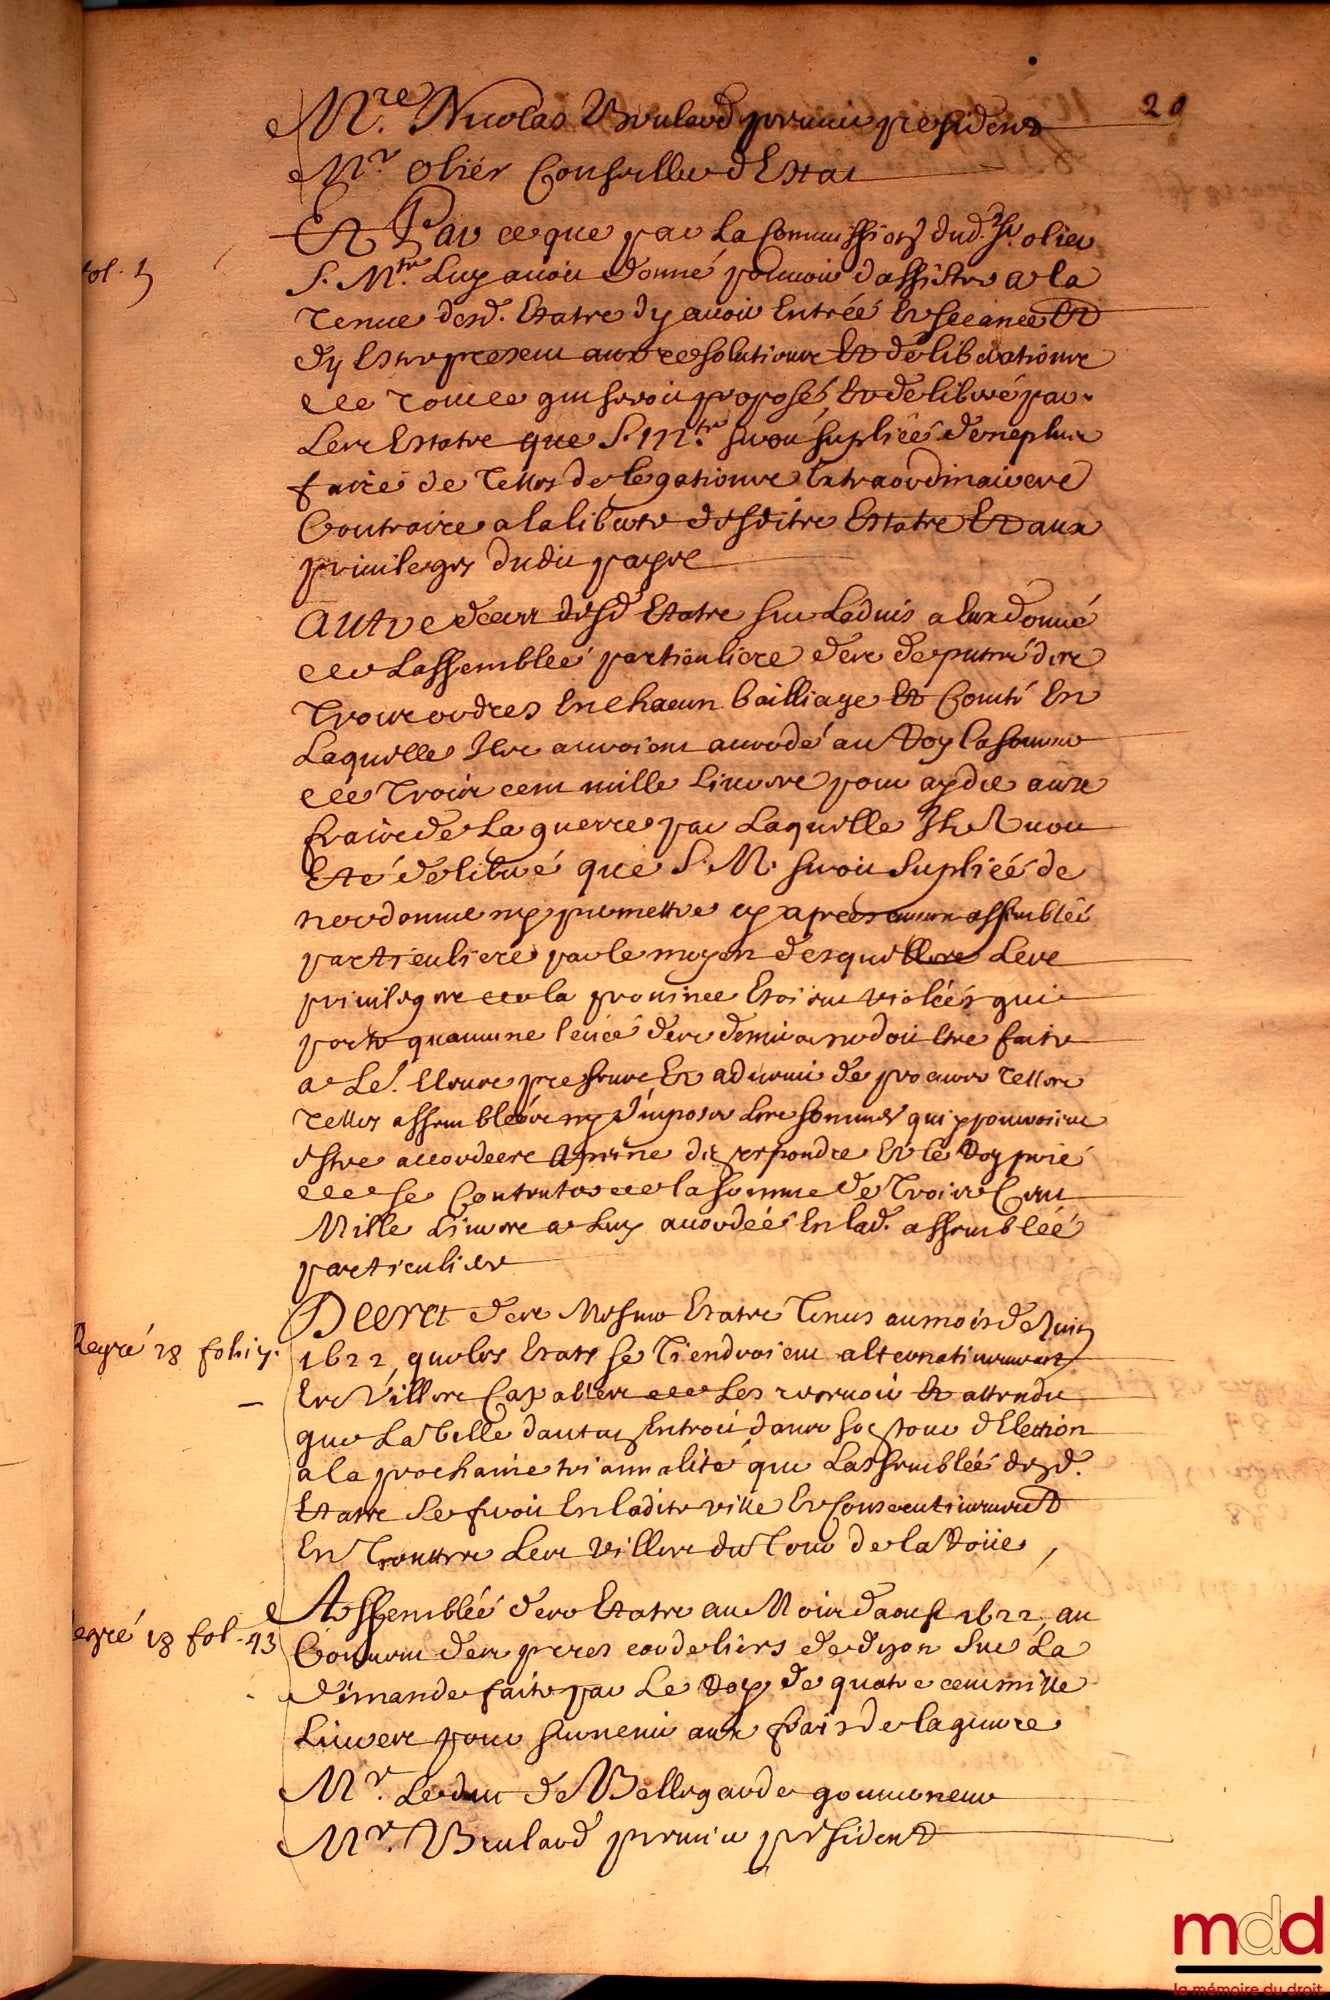 20
Mre. Nicolas Brulard premier president
Mr. Olier Conseiller d'Estat
Et Par ce que par la Commission dud. Sr. olier
fol. 5
S. Mté. Luy avoit donné pouvoir d'assister a la
Tenue desd. Etats d'y avoir Entréé Et seeance Et
d'y Estre present aux resolutions Et deliberations
de Tout ce qui seroit proposé, Et deliberé par
Les Estats que S. Mté. seroit supliéé de ne plus
faire de Telles delegations Extraordinaires
Contraire a la liberté desdits Estats Et aux
privileges dudit pays
Autre decret desd. Etats sur Ladvis a Eux donné
de Lassembléé particuliere des deputés des
Trois ordres En chacun bailliage Et Comté En
Laquelle Ils auroient accordé au Roy la somme
de Trois cent mille Livres pour ayder aux
frais de La guerre par Laquelle Il Avoit
Eté deliberé que S. M. seroit supliéé de
n'ordonner ny permettre cy apres aucune assembléé
particuliere par le moyen desquelles Les
privileges de la province Etoient violéés qui
porte qu'aucune levéé des deniers ne doit Etre faite
a Le. Telles
Telles assembléés ny d'imposer Les sommes qui y pouroient
estre accordéés a peine d'en repondre Et le Roy prié
de se Contenter de la somme de Trois Cent
Mille Livres a Luy accordéé En lad. assembléé
particuliere
Decret des Mesmes Etats Tenus au mois de Juin
Regré 18 fol. 7.
1622 que les Etats se Tiendroient alternativement
Es Villes Capables de Les recevoir Et attendu
que La Ville d'autun Entroit dans son Tour d'Election
a la prochaine triannalité que Lassembléé desd.
Etats Se feroit En ladite ville Et Consecutivement
En Toutes Les Villes du Tour de la Roüe,
Assembléé des Etats au Mois d'aoust 1622, au
Regré 18 fol. 43
Couvent des peres cordeliers de dijon Sur La
demande faite par Le Roy de quatre cent mille
Livres pour survenir aux frais de la guerre
Mr. Le duc de Bellegarde gouverneur
Mr. Brulard premier president
mdd
la mémoire du droit